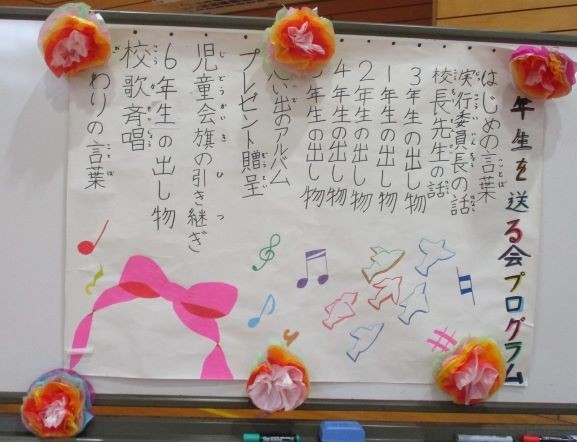 年生を送る会プログラム
はじめの言葉
実行委員長の話
校長先生の話
3年生の出し物
1年生の出し物
2年生の出し物
4年生の出し物
年生の出し物
い出のアルバム
プレゼント贈呈
児童会旗の引き継ぎ
6年生の出し物
校歌斉唱
わりの言葉